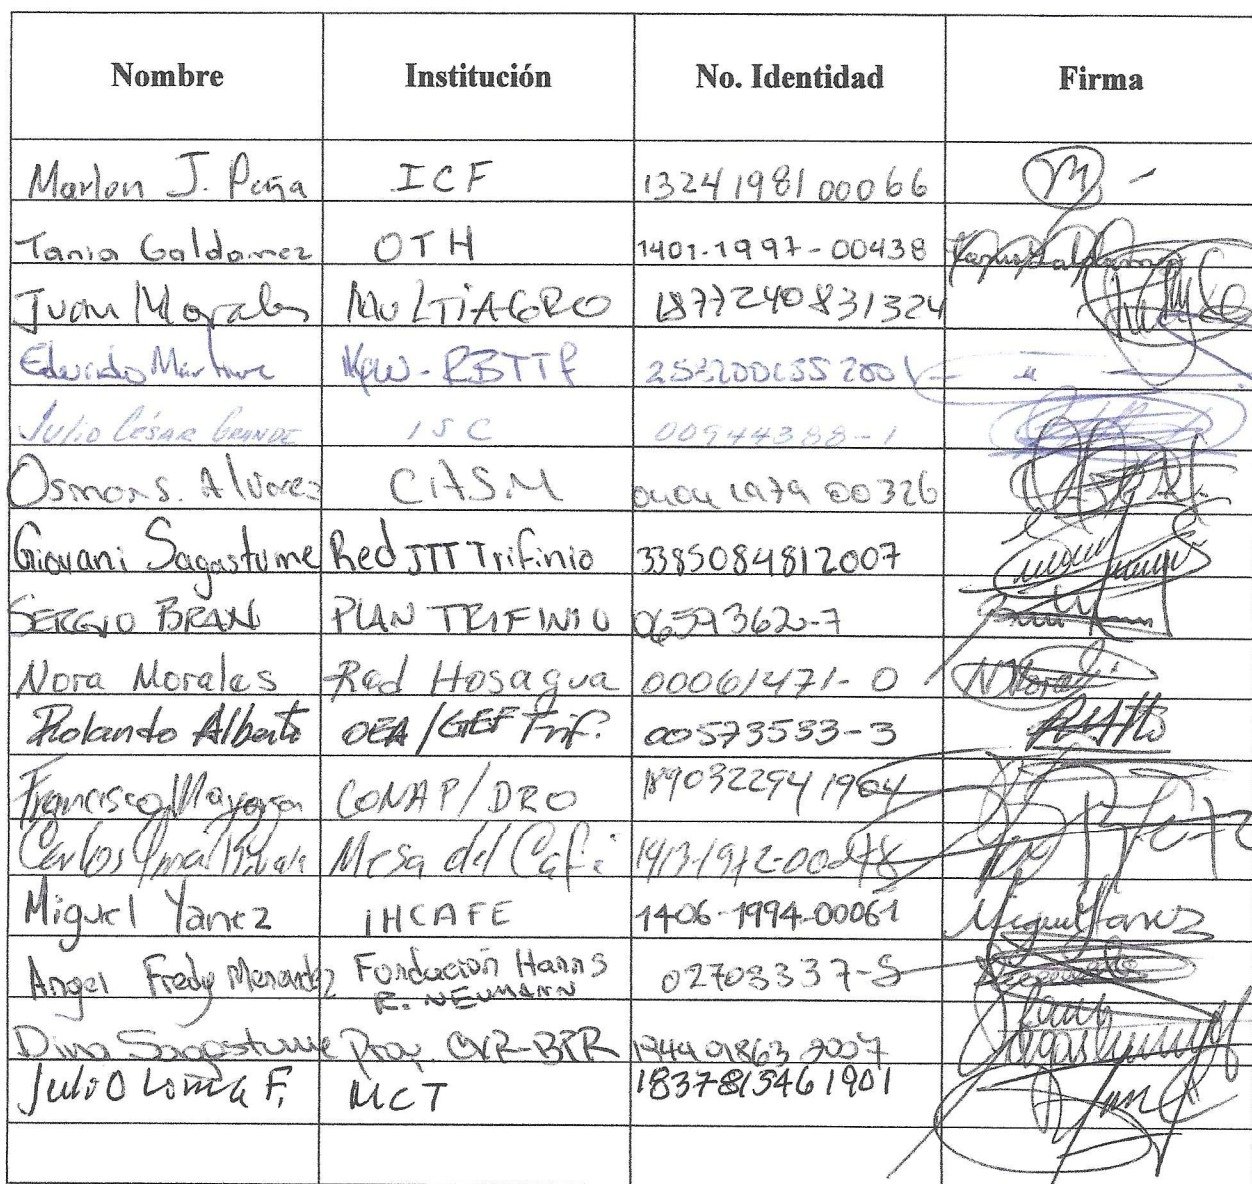 Nombre Institución No. Identidad Firma
Marlon J. Peña ICF 1324198100066
Tania Galdamez OTH 1401-1997-00438
Juan Morales MULTiAGRO 1877240831324
Eduardo RBTTF
Julio César GRANDE ISC 00944388-1
Osman S. Alvarez CASM 0404 1979 00326
Giovani Sagastume Red JTT Trifinio 3385084812007
SERGIO BRAN PLAN TRIFINIO 0659362-7
Nora Morales Red Hosagua 00061471-0
Rolando Alberto OEA/GEF Trif. 00573533-3
Francisco Mayorga CONAP/DRO 189032294 1904
Carlos Mesa del Café
Miguel Yanez iHCAFE 1406-1994-00061 Miguel Yanez
Angel Fredy Menendez Fundación Hanns
R. NEUMANN 02703337-5
Dina Sagastume Proy.
Julio F. MCT 1837815461901